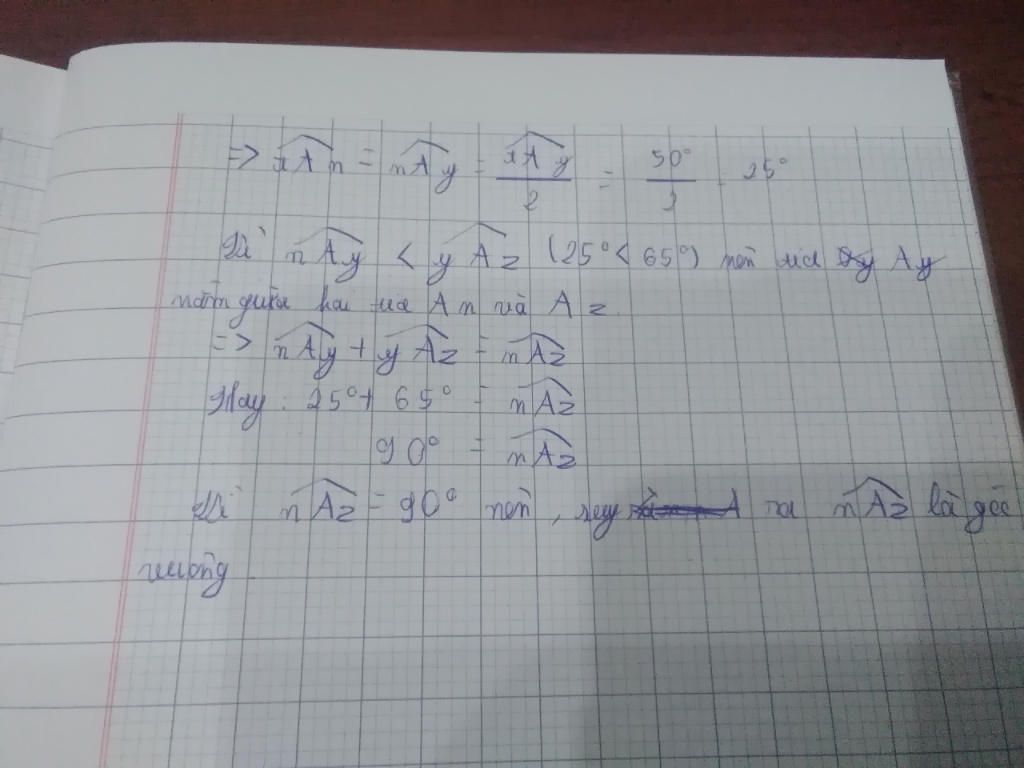 => xAn = nAy = xAy/2 = 50°/2 = 25°
Vì nAy < yAz (25° < 65°) nên tia Ay
nằm giữa hai tia An và Az.
=> nAy + yAz = nAz
Hay: 25° + 65° = nAz
90° = nAz
Vì nAz = 90° nên, suy ra nAz là góc
vuông.